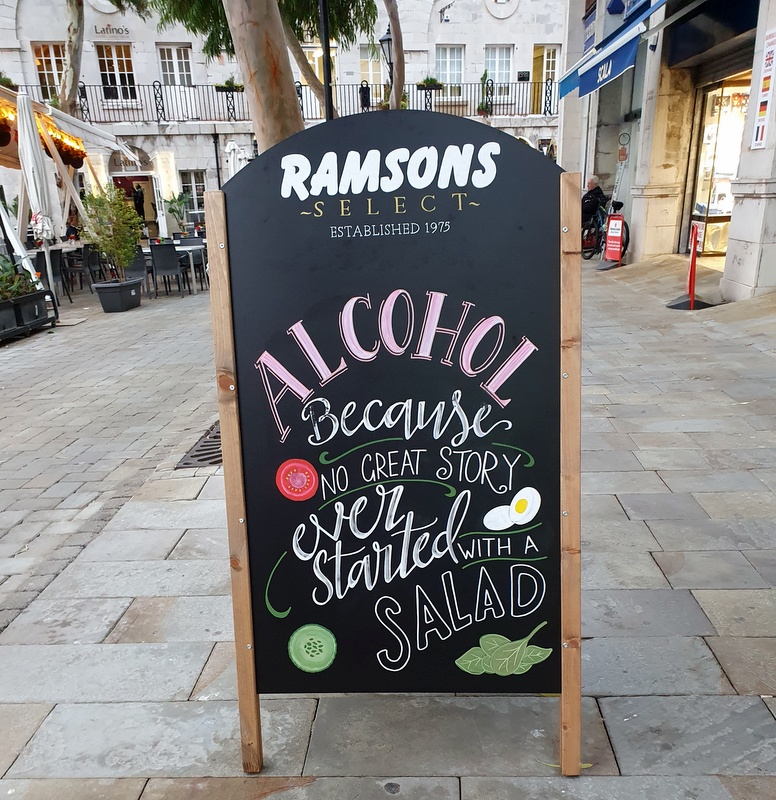 Latino's
Latino's
SCALA
RAMSONS
~SELECT~
ESTABLISHED 1975
ALCOHOL
Because
NO GREAT STORY
ever
started WITH A
SALAD